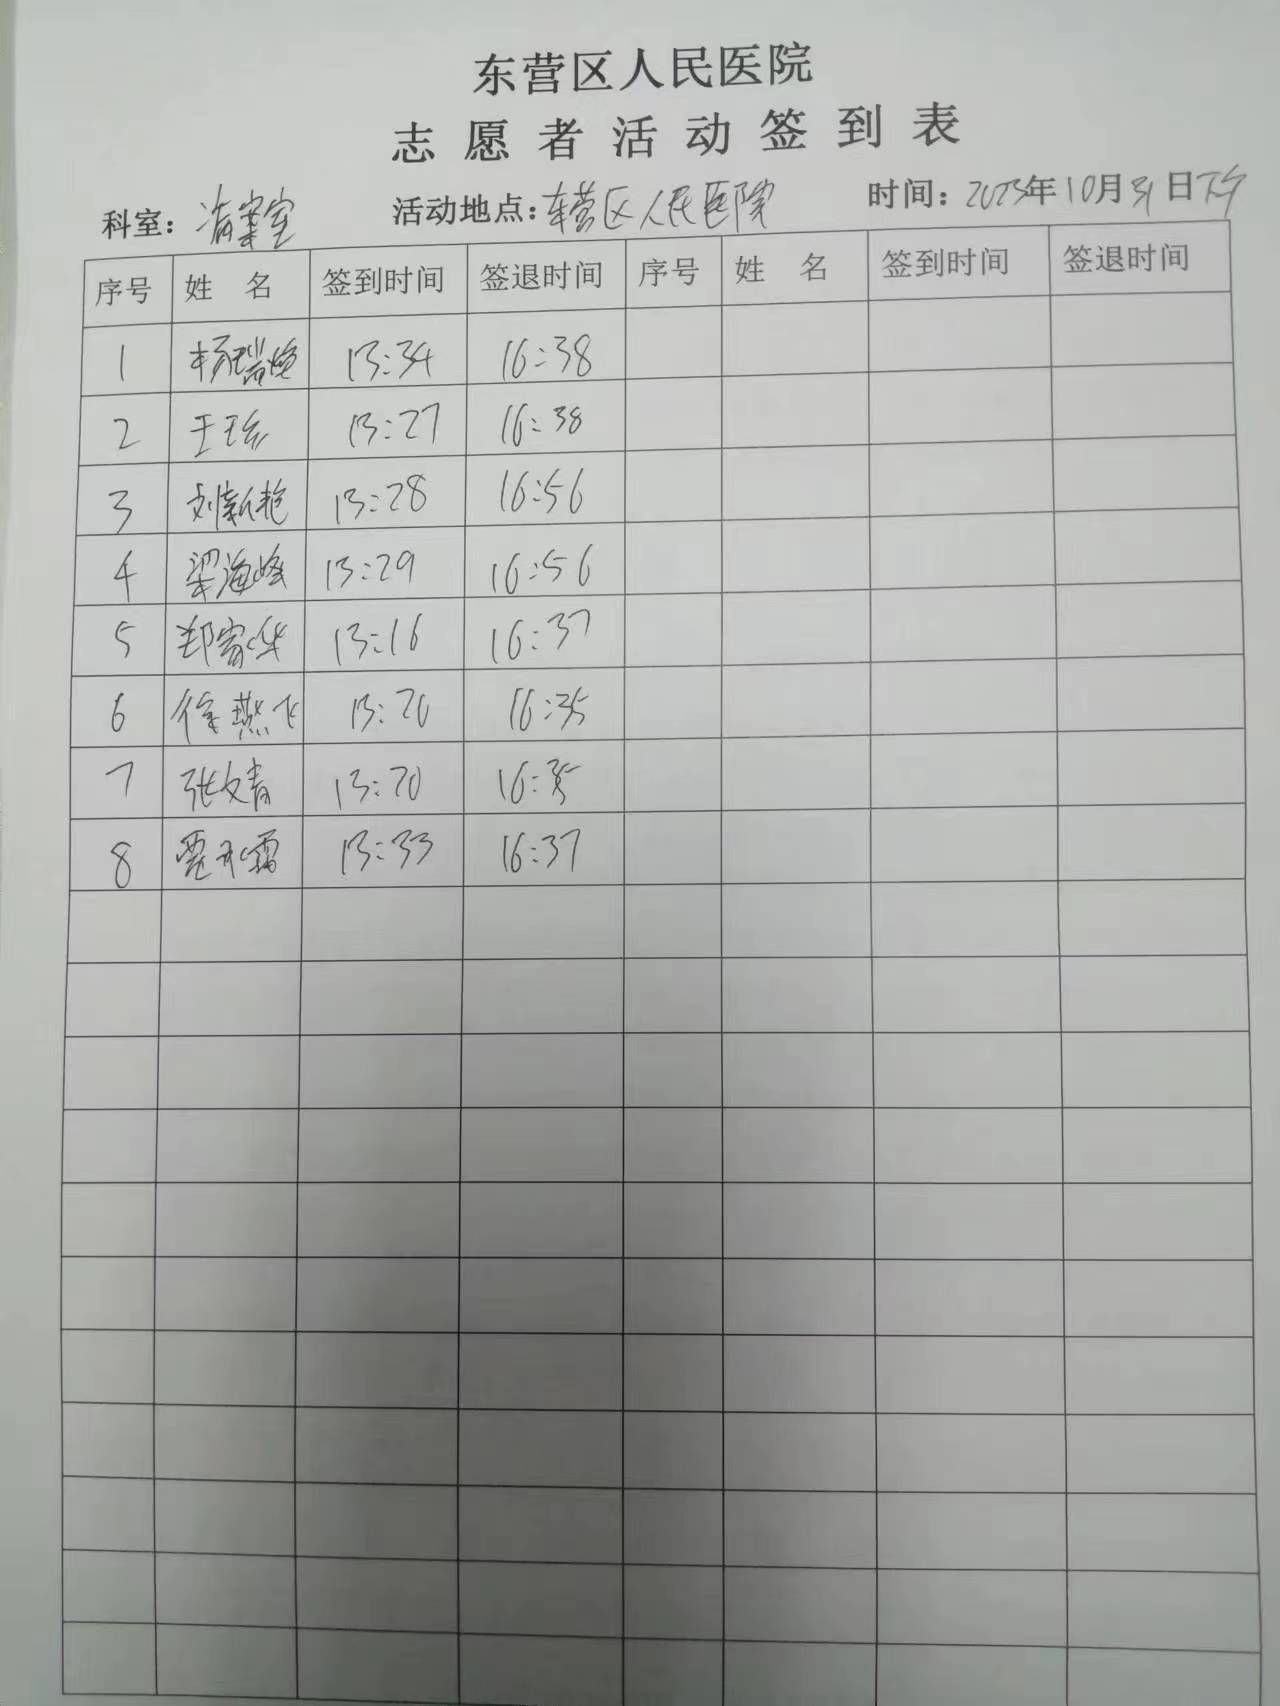 东营区人民医院
志愿者活动签到表
科室：病案室 活动地点：东营区人民医院 时间：2023年10月31日下午
序号 姓名 签到时间 签退时间 序号 姓名 签到时间 签退时间
1 杨瑞 13:34 16:38
2 王珍 13:27 16:38
3 刘新艳 13:28 16:56
4 梁海峰 13:29 16:56
5 郑家华 13:16 16:37
6 徐燕飞 13:20 16:35
7 张文青 13:20 16:35
8 13:33 16:37